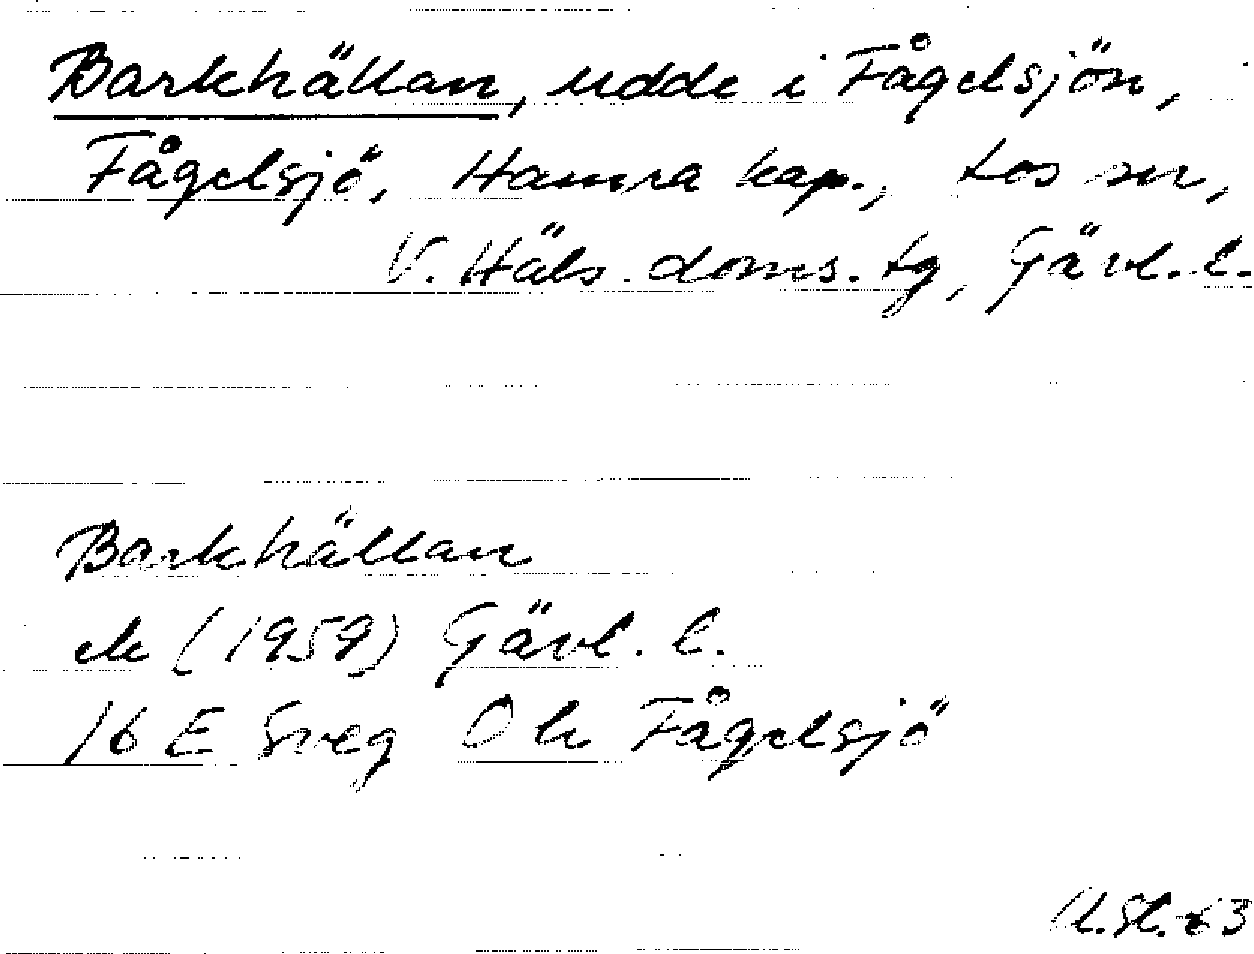 Barkhällan, udde i Fågelsjön,
Fågelsjö, Hamra kap., Los sn,
V. Häls. doms. tg, Gävl. l.
Barkhällan
ek (1959) Gävl. l.
16 E Sveg 0 h Fågelsjö
63